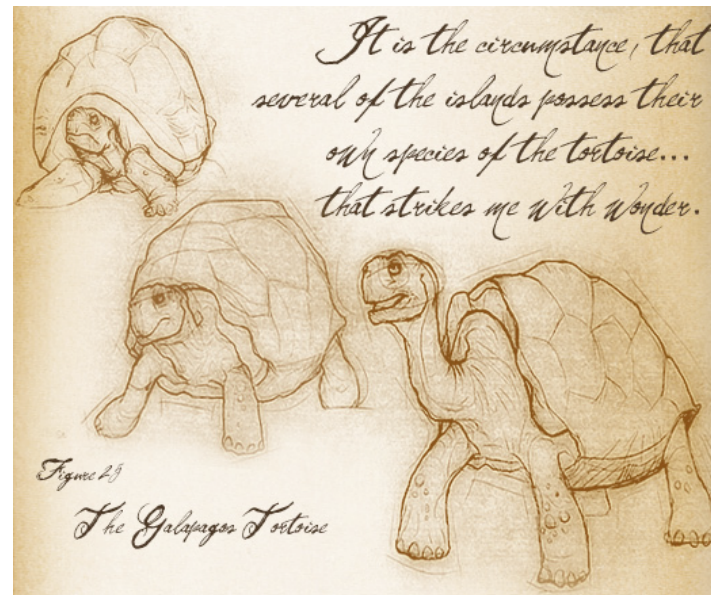 It is the circumstance, that
several of the islands possess their
own species of the tortoise...
that strikes me with wonder.
Figure 28
The Galapagos Tortoise